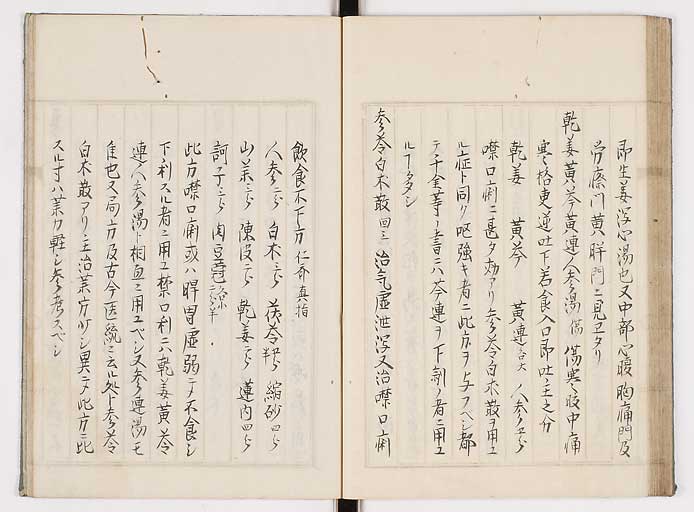 即生姜瀉心湯也又中部心腹胸痛門及
労瘵門黄胖門ニ見ヱタリ
乾姜黄芩黄連人参湯 傷 傷寒腹中痛
寒格更逆吐下若食入口即吐主之方
乾姜 黄芩 黄連 各大 人参
噤口痢ニ甚タ効アリ参苓白朮散ヲ用ユ
ル症ト同ク呕強キ者ニ此方ヲ与フベシ都
テ千金等ノ書ニハ芩連ヲ下剤ノ者ニ用ユ
ルコタシ
参苓白朮散 四三 治気虚泄瀉又治噤口痢
飲食不下方 仁斉真指
人参 白朮 茯苓 縮砂
山薬 陳皮 乾姜 蓮肉
訶子 肉豆蔲
此方噤口痢或ハ脾胃虚弱ニメ不食シ
下利スル者ニ用ユ禁口利ニハ乾姜黄芩
連人参湯ト相互ニ用ユベシ又参連湯モ
佳也又局方及古今医統ニ云処ト参苓
白朮散アリ主治薬方少シ異ニメ此方ニ比
スル寸ハ薬力軽シ参考スベシ